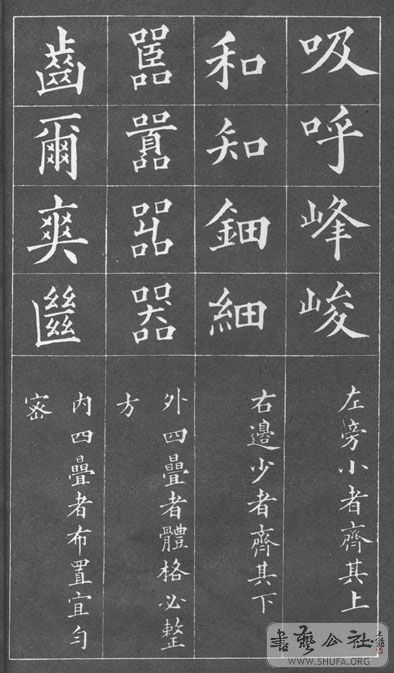 吸呼峰峻
左旁小者齊其上
和知鈿細
右邊少者齊其下
嚚囂嘂器
外四疊者體格必整
方
齒爾爽
內四疊者布置宜勻
密
書藝公社
WWW.SHUFA.ORG